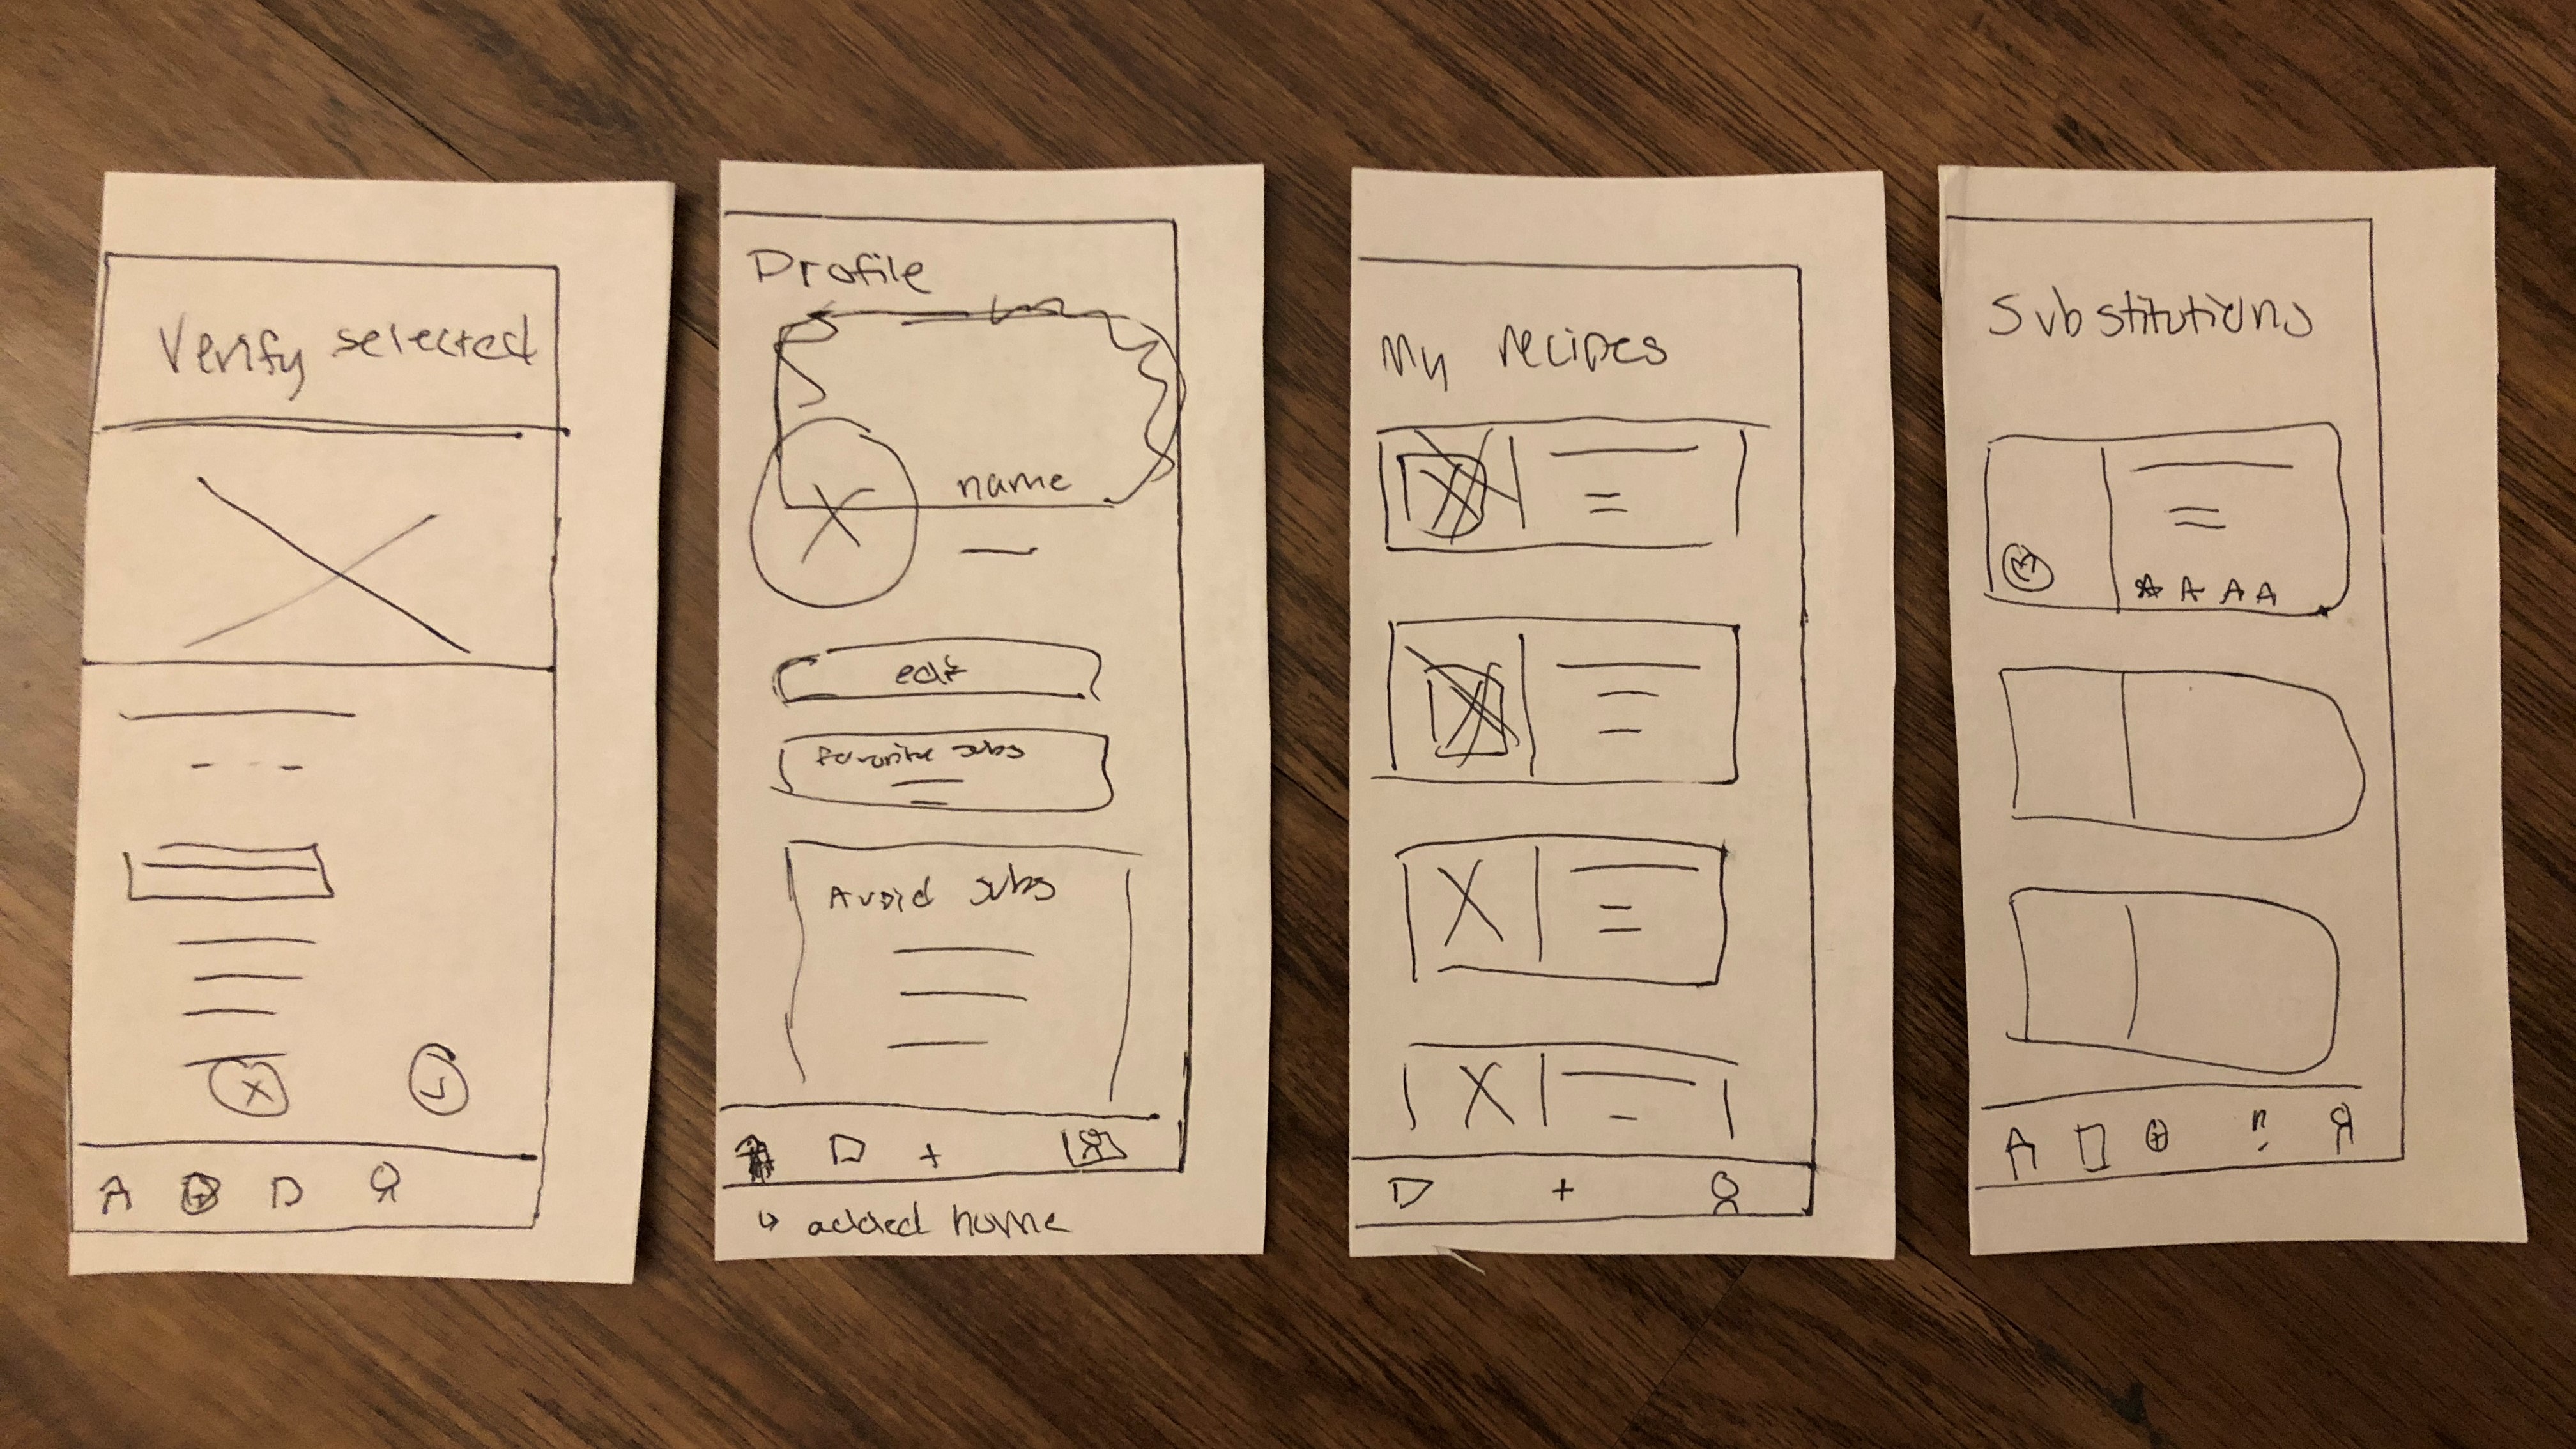 Verify selected
Profile
name
edit
favorite subs
Avoid subs
↳ added home
My recipes
Substitutions